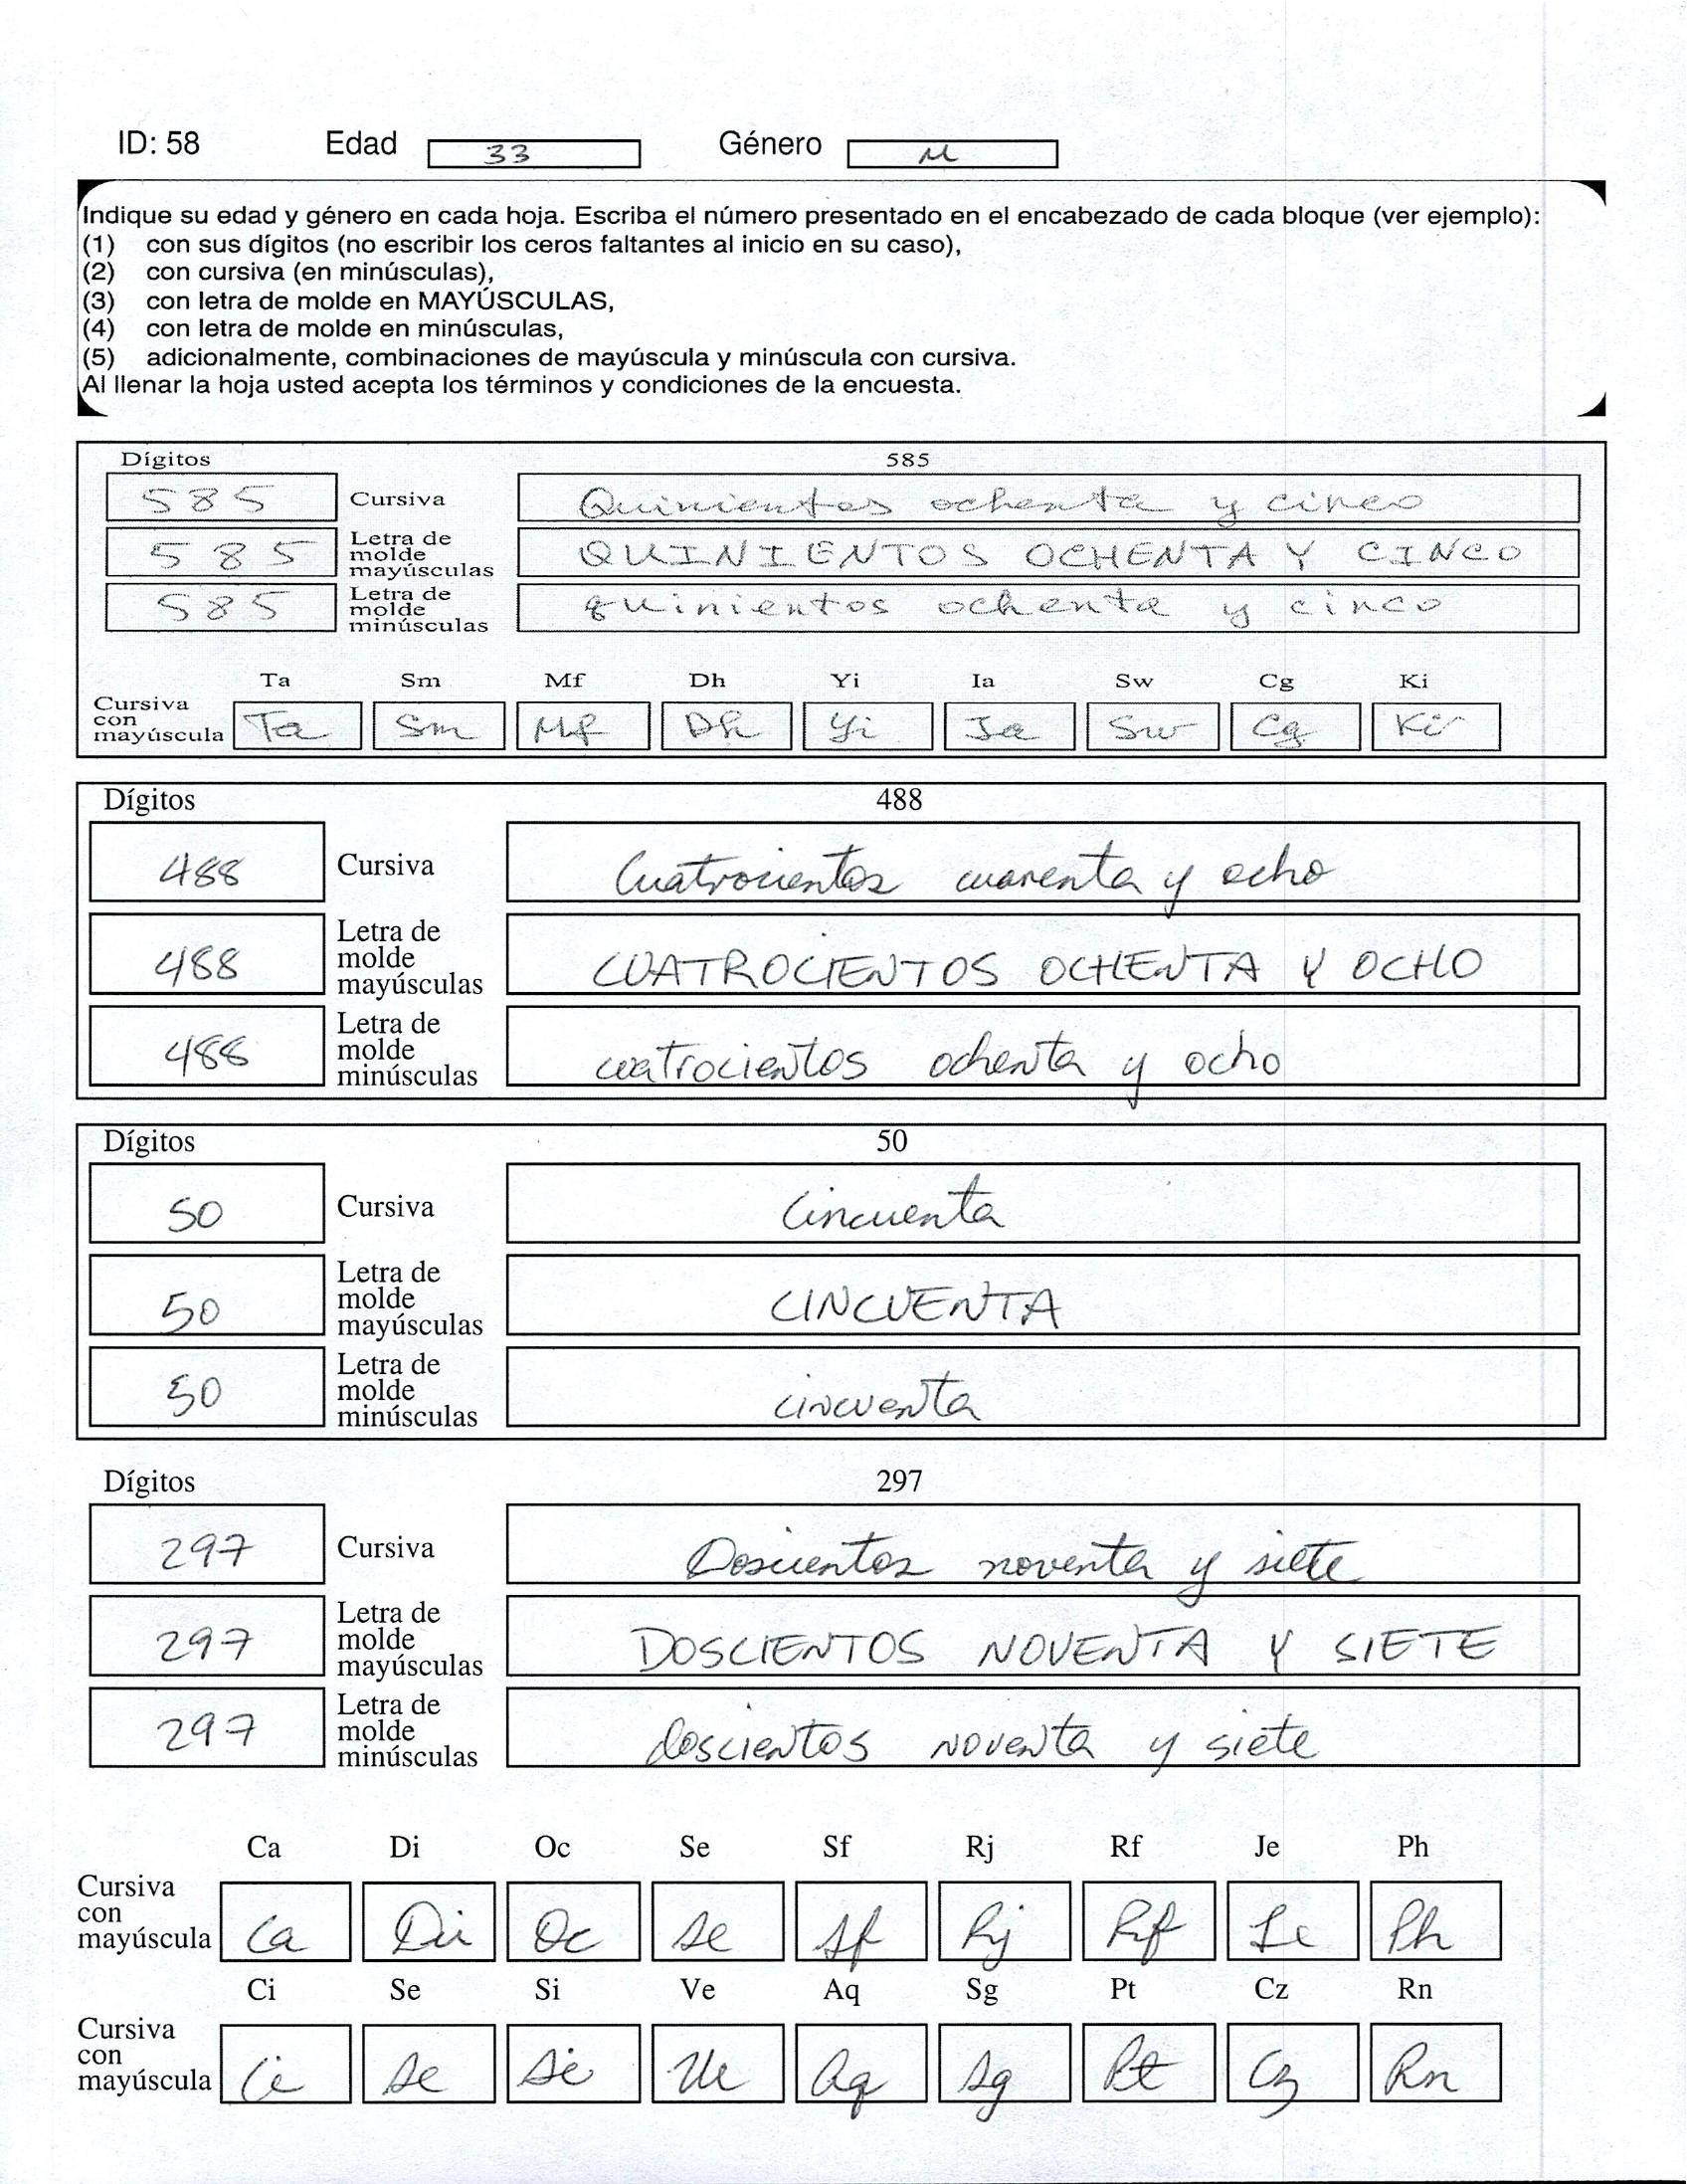 ID: 58 Edad 33 Género M
Indique su edad y género en cada hoja. Escriba el número presentado en el encabezado de cada bloque (ver ejemplo):
(1) con sus dígitos (no escribir los ceros faltantes al inicio en su caso),
(2) con cursiva (en minúsculas),
(3) con letra de molde en MAYÚSCULAS,
(4) con letra de molde en minúsculas,
(5) adicionalmente, combinaciones de mayúscula y minúscula con cursiva.
Al llenar la hoja usted acepta los términos y condiciones de la encuesta.
Dígitos 585
585 Cursiva Quinientos ochenta y cinco
585 Letra de molde mayúsculas QUINIENTOS OCHENTA Y CINCO
585 Letra de molde minúsculas quinientos ochenta y cinco
Ta Sm Mf Dh Yi Ia Sw Cg Ki
Cursiva con mayúscula Ta Sm Mf Dh Yi Ia Sw Cg Ki
Dígitos 488
488 Cursiva Cuatrocientos cuarenta y ocho
488 Letra de molde mayúsculas CUATROCIENTOS OCHENTA Y OCHO
488 Letra de molde minúsculas cuatrocientos ochenta y ocho
Dígitos 50
50 Cursiva Cincuenta
50 Letra de molde mayúsculas CINCUENTA
50 Letra de molde minúsculas cincuenta
Dígitos 297
297 Cursiva Doscientos noventa y siete
297 Letra de molde mayúsculas DOSCIENTOS NOVENTA Y SIETE
297 Letra de molde minúsculas doscientos noventa y siete
Ca Di Oc Se Sf Rj Rf Je Ph
Cursiva con mayúscula Ca Di Oc Se Sf Rj Rf Je Ph
Ci Se Si Ve Aq Sg Pt Cz Rn
Cursiva con mayúscula Ci Se Si Ve Aq Sg Pt Cz Rn